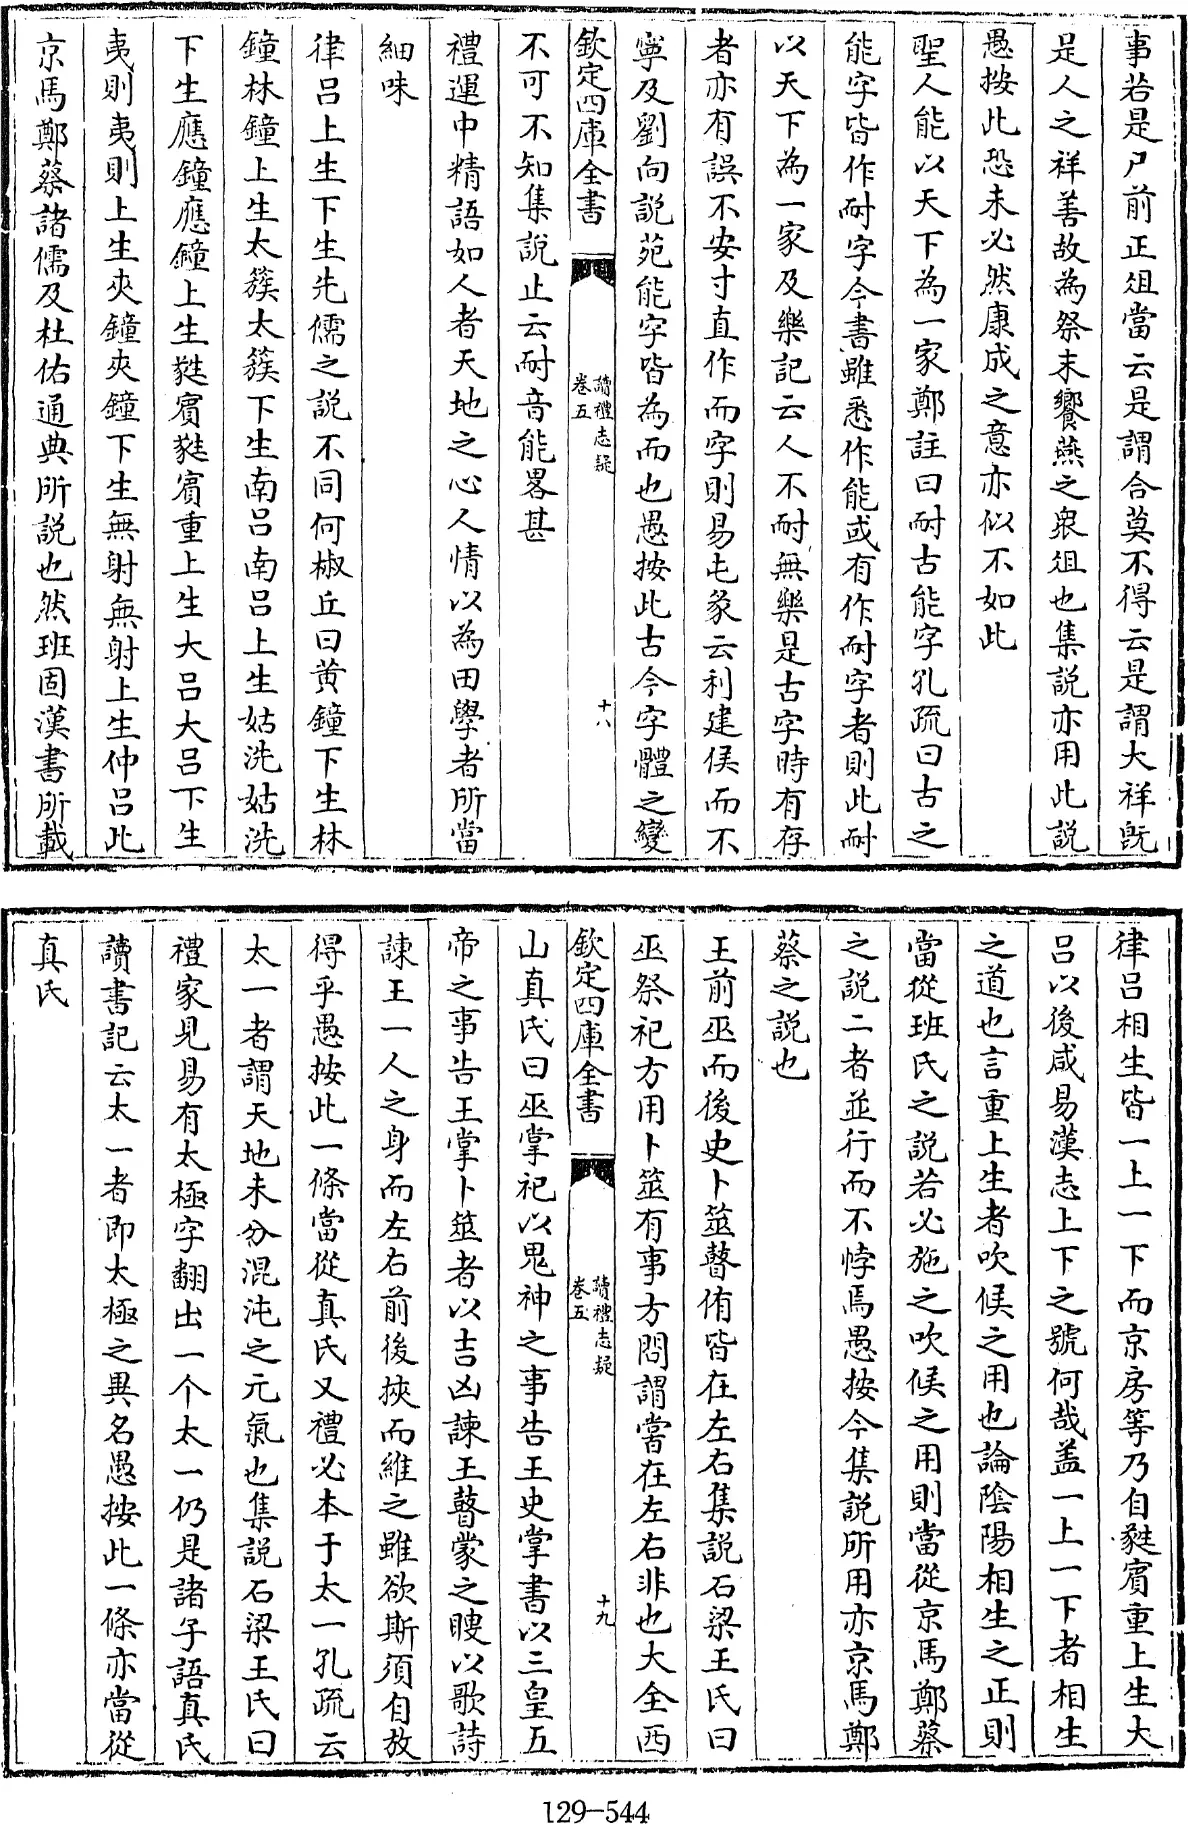 事若是尸前正俎當云是謂合莫不得云是謂大祥既
是人之祥善故為祭末饗燕之衆俎也集説亦用此説
愚按此恐未必然康成之意亦似不如此
聖人能以天下為一家鄭註曰耐古能字孔疏曰古之
能字皆作耐字今書雖悉作能或有作耐字者則此耐
以天下為一家及樂記云人不耐無樂是古字時有存
者亦有誤不安寸直作而字則易屯彖云利建侯而不
寧及劉向説苑能字皆為而也愚按此古今字體之變
欽定四庫全書
讀禮志疑
卷五
十八
不可不知集説止云耐音能畧甚
禮運中精語如人者天地之心人情以為田學者所當
細味
律呂上生下生先儒之説不同何椒丘曰黄鐘下生林
鐘林鐘上生太簇太簇下生南呂南呂上生姑洗姑洗
下生應鐘應鐘上生蕤賓蕤賓重上生大呂大呂下生
夷則夷則上生夾鐘夾鐘下生無射無射上生仲呂此
京馬鄭蔡諸儒及杜佑通典所説也然班固漢書所載
律呂相生皆一上一下而京房等乃自蕤賓重上生大
呂以後咸易漢志上下之號何哉盖一上一下者相生
之道也言重上生者吹候之用也論陰陽相生之正則
當從班氏之説若必施之吹候之用則當從京馬鄭蔡
之説二者並行而不悖焉愚按今集説所用亦京馬鄭
蔡之説也
王前巫而後史卜筮瞽侑皆在左右集説石梁王氏曰
巫祭祀方用卜筮有事方問謂嘗在左右非也大全西
欽定四庫全書
讀禮志疑
卷五
十九
山真氏曰巫掌祀以鬼神之事告王史掌書以三皇五
帝之事告王掌卜筮者以吉凶諫王瞽蒙之瞍以歌詩
諫王一人之身而左右前後挾而維之雖欲斯須自放
得乎愚按此一條當從真氏又禮必本于太一孔疏云
太一者謂天地未分混沌之元氣也集説石梁王氏曰
禮家見易有太極字翻出一个太一仍是諸子語真氏
讀書記云太一者即太極之異名愚按此一條亦當從
真氏
129-544